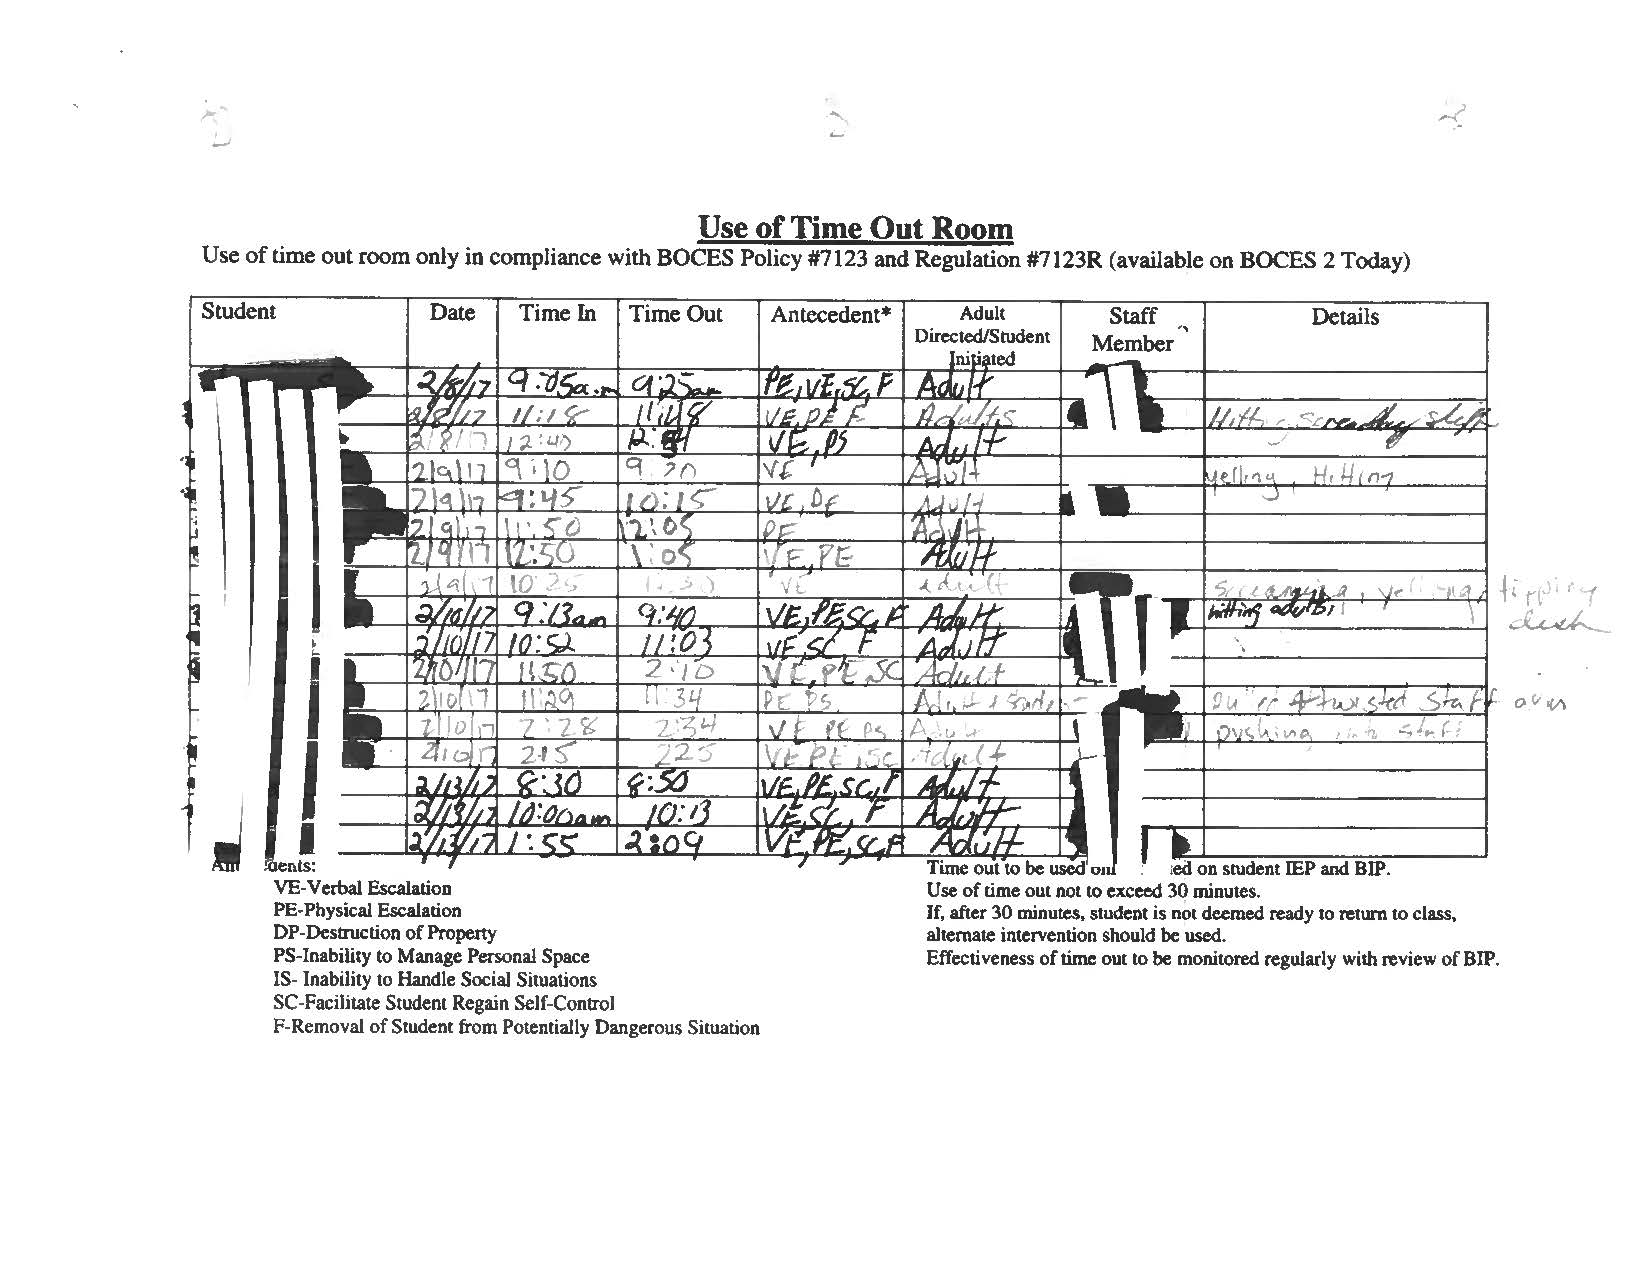 Use of Time Out Room
Use of time out room only in compliance with BOCES Policy #7123 and Regulation #7123R (available on BOCES 2 Today)
Student Date Time In Time Out Antecedent* Adult Directed/Student Initiated Staff Member Details
2/8/17 9:05a.m 9:25am PE,VE,SC,F Adult
2/8/17 11:18 11:48 VE,PE F Adults staff
2/8/17 12:40 VE,PS Adult
2/9/17 9:10 9:20 VE Adult yelling, Hitting
2/9/17 9:45 10:15 VE, Adult
2/9/17 11:50 12:05 PE Adult
2/9/17 12:50 1:05 VE,PE Adult
2/9/17 10:25 VE adult screaming, yelling, tipping desk
2/10/17 9:13am 9:40 VE,PE,SC,F Adult hitting adults,
2/10/17 10:52 11:03 VE,SC, F Adult
2/10/17 VE,PE,SC Adult
2/10/17 11:29 11:34 PE PS twisted staff
2/10/17 2:28 2:34 VE PE PS Adult pushing into staff
2/10/17 2:15 2:25 VE PE SC Adult
2/13/17 8:30 8:50 VE,PE,SC,F Adult
2/13/17 10:00am 10:13 VE,SC, F Adult
2/13/17 1:55 2:09 VE,PE,SC,F Adult
VE-Verbal Escalation
PE-Physical Escalation
DP-Destruction of Property
PS-Inability to Manage Personal Space
IS- Inability to Handle Social Situations
SC-Facilitate Student Regain Self-Control
F-Removal of Student from Potentially Dangerous Situation
Time out to be used on student IEP and BIP.
Use of time out not to exceed 30 minutes.
If, after 30 minutes, student is not deemed ready to return to class,
alternate intervention should be used.
Effectiveness of time out to be monitored regularly with review of BIP.